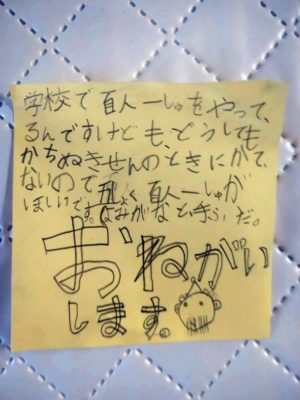 学校で百人一しゅをやって、
るんですけども、どうしても
かちぬきせんのときにかて
ないので 百人一しゅが
ほしいです。
おねがい
します。